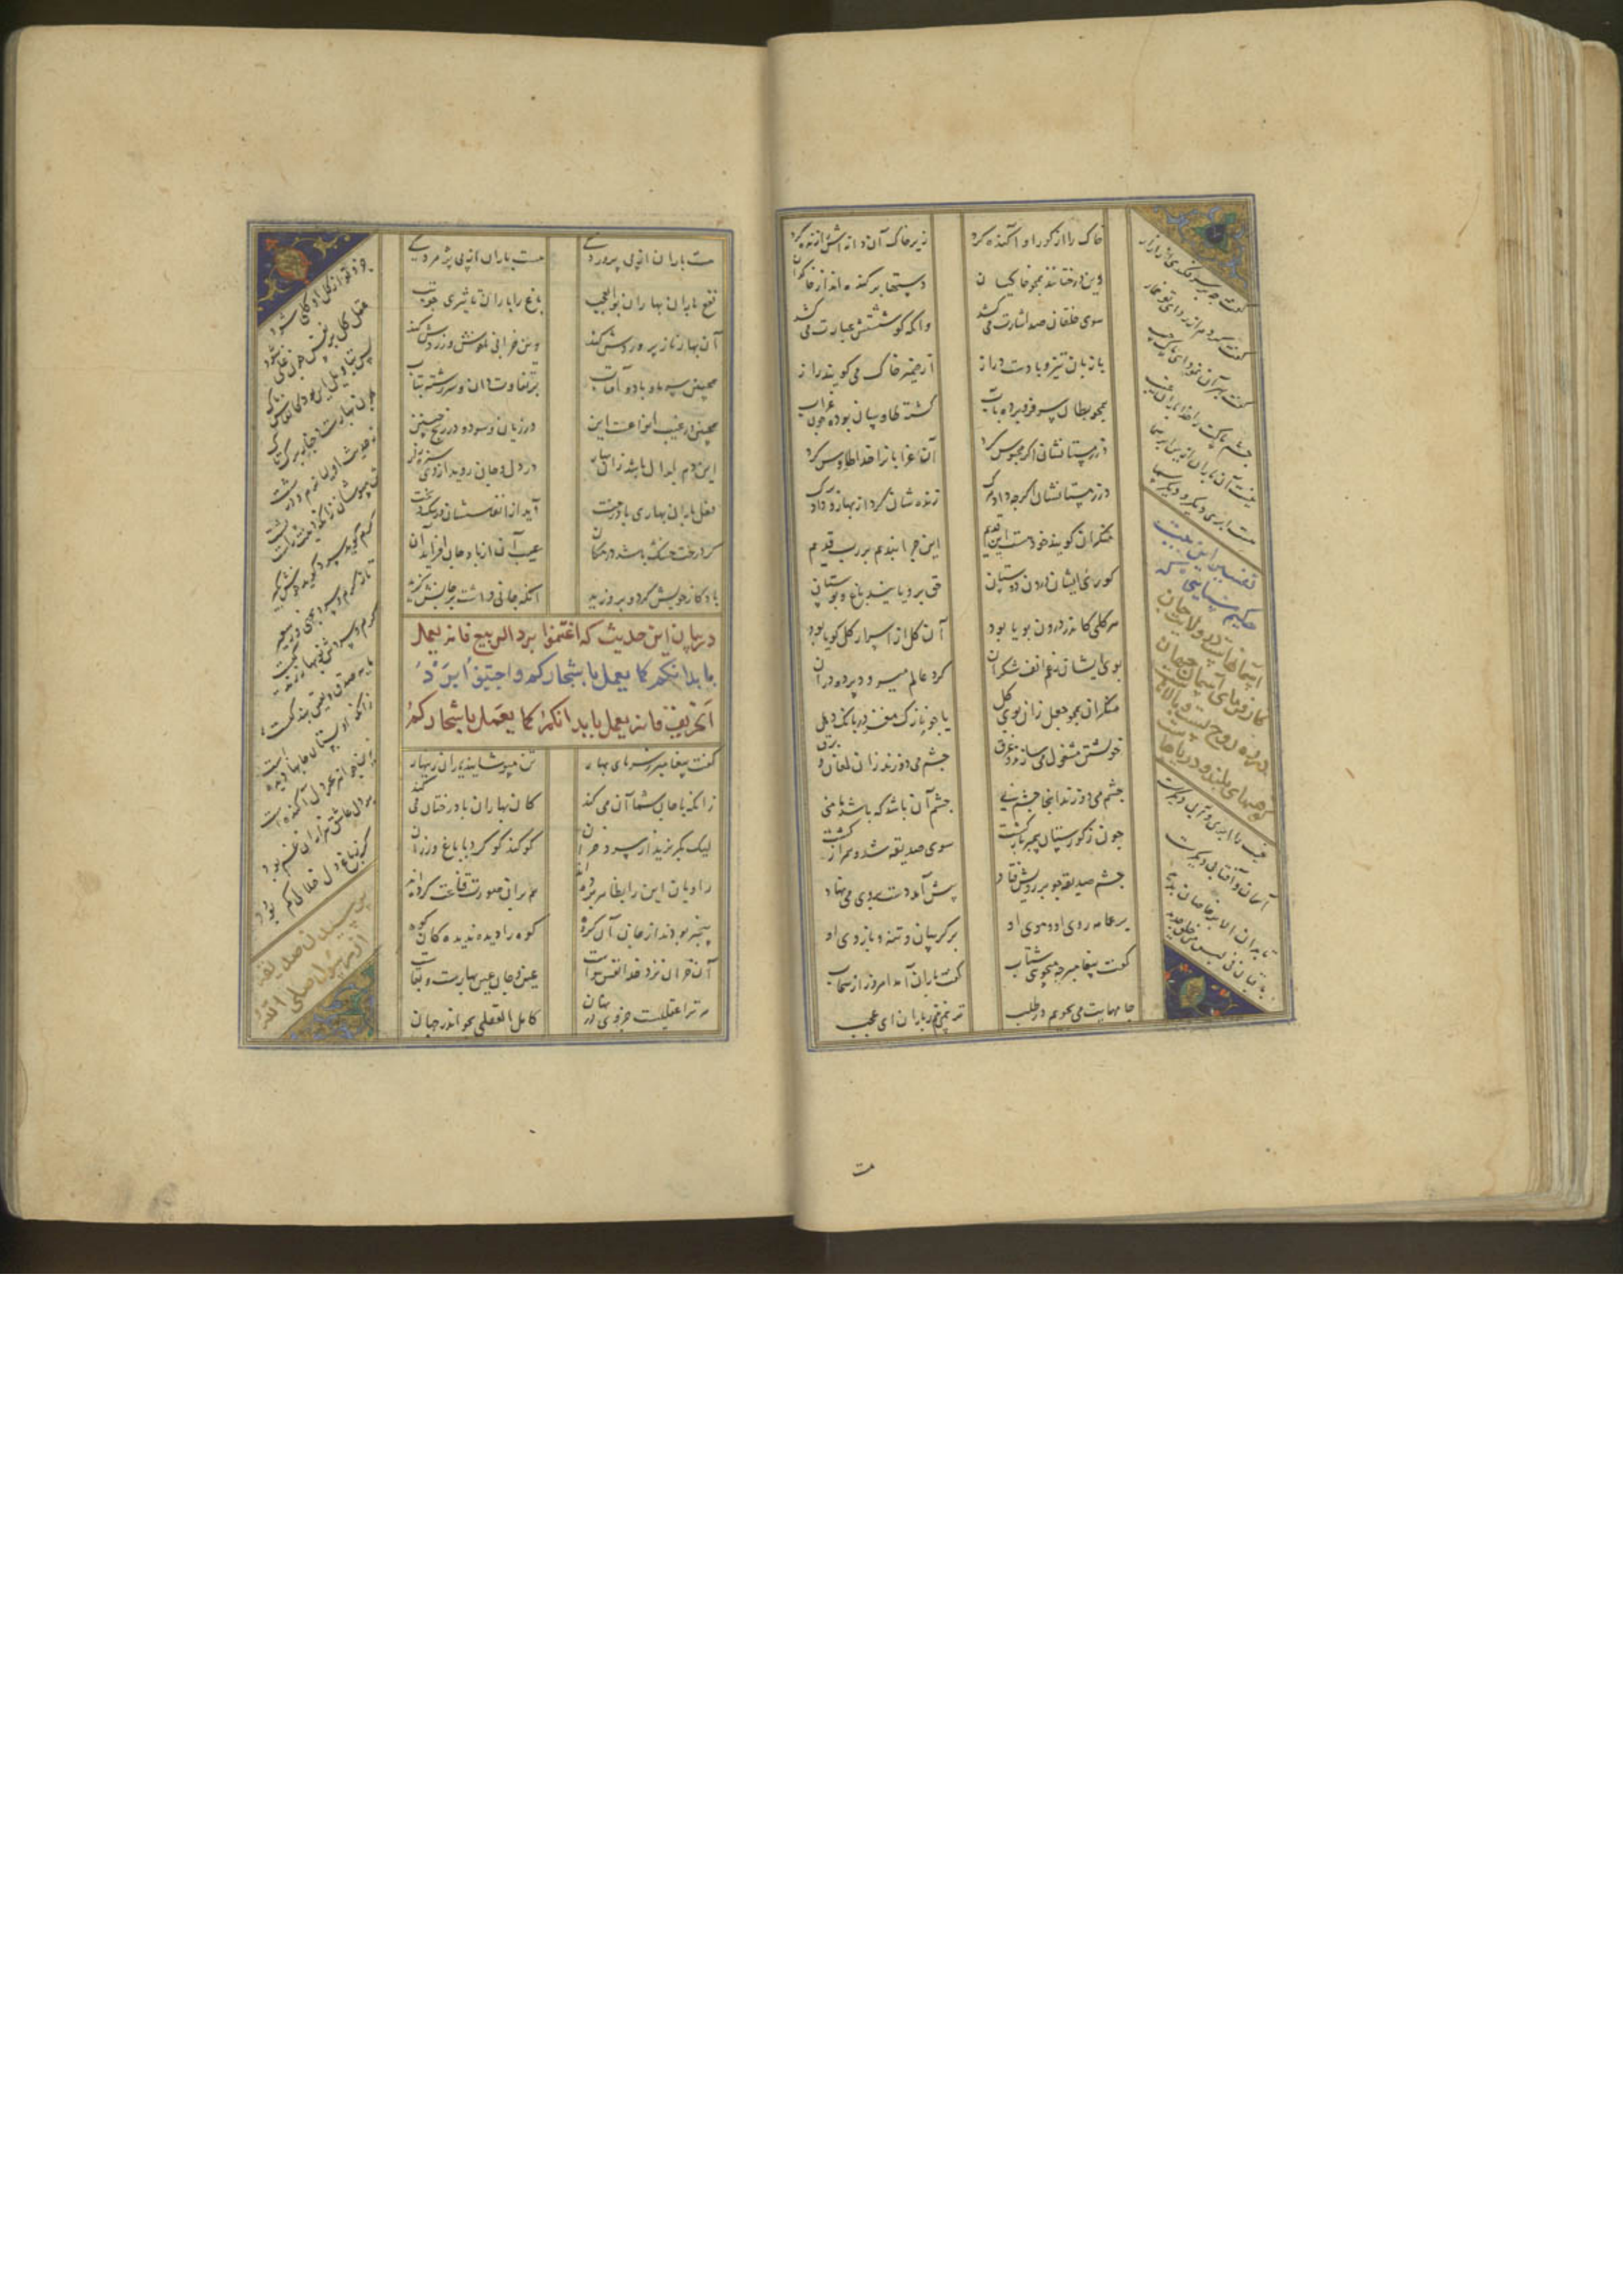 خاک را از کور او آکنده کرد زیر خاک آن دانه اش را زنده کرد
وین درختانند همچو خاکیان دستها بر کرده اند از خاکدان
سوی خلقان صد اشارت می کنند وانکه کوشستش عبارت می کنند
با زبان تیز و با دست دراز از ضمیر خاک می کویند راز
همچو بطان سر فرو برده بآب کشته طاوسان بوده چون غراب
در زمستانشان اکر محبوس کرد آن غرابان را خدا طاوس کرد
در زمستانشان اکرچه داد مرک زنده شان کرد از بهار و داد برک
منکران کویند خود هست این قدیم این چرا بندیم بر رب قدیم
کوری ایشان درون دوستان حق برویانید باغ و بوستان
هر کلی کاندر درون بویا بود آن کل از اسرار کل کویا بود
بوی ایشان رغم انف منکران کرد عالم میرود پرده دران
منکران همچو جعل زان بوی کل یا چو نازک مغز در بانک دهل
خویشتن مشغول می سازند و غرق چشم می دوزند زان لمعان و برق
چشم می دوزند انجا چشم نی چشم آن باشد که باشد مامنی
چون ز کورستان پیمبر باز کشت سوی صدیقه شد و همراز کشت
چشم صدیقه چو بر رویش فتاد پیش آمد دست بر وی می نهاد
بر عمامه روی او و موی او بر کریبان و تن و بازوی او
کفت پیغامبر چه میجویی شتاب کفت باران آمد امروز از سحاب
جامهایت می بجویم در طلب تر نمی بینم ز باران ای عجب
کفت چه بر سر فکندی از ازار
کفت کردم آن ردای تو خمار
کفت بهر آن نمود ای پاک جیب
چشم پاکت را خدا باران غیب
نیست آن باران ازین ابر شما
هست ابری دیکر و دیکر سما
تفسیر این بیت
حکیم سنایی که
آسمانهاست در ولایت جان
کارفرمای آسمان جهان
در ره روح پست و بالاهاست
کوههای بلند و دریاهاست
غیب را ابری و آبی دیکرست
آسمان و آفتابی دیکرست
ناید آن الا که بر خاصان پدید
باقیان فی لبس من خلق جدید
هست
هست باران از پی پروردکی هست باران از پی پژمردکی
نفع باران بهاران بوالعجب باغ را باران پاییزی چو تب
آن بهاری ناز پروردش کند وین خزانی ناخوش و زردش کند
همچنین سرما و باد و آفتاب بر تفاوت دان و سررشته بیاب
همچنین در غیب انواعست این در زیان و سود و در ربح و غبین
این دم ابدال باشد زان بهار در دل و جان روید از وی سبزه زار
فعل باران بهاری با درخت آید از انفاسشان در نیکبخت
کر درخت خشک باشد در مکان عیب آن از باد جان افزا مدان
باد کار خویش کرد و بر وزید آنکه جانی داشت بر جانش کزید
در بیان این حدیث که اغتنموا برد الربیع فانه یعمل
بابدانکم کما یعمل باشجارکم و اجتنبوا برد
الخریف فانه یعمل بابدانکم کما یعمل باشجارکم
کفت پیغامبر ز سرمای بهار تن مپوشانید یاران زینهار
زانکه با جان شما آن می کند کان بهاران با درختان می کند
لیک بکریزید از سرد خزان کو کند کو کرد با باغ و رزان
راویان این را بظاهر برده اند هم بران صورت قناعت کرده اند
بیخبر بودند از جان آن کروه کوه را دیده ندیده کان بکوه
آن خزان نزد خدا نفس و هواست عقل و جان عین بهارست و بقاست
مر ترا عقلیست جزوی در نهان کامل العقلی بجو اندر جهان
جزو تو از کل او کلی شود
عقل کل بر نفس چون غلی شود
پس بتاویل این بود کانفاس پاک
چون بهارست و حیات برک و تاک
از حدیث اولیا نرم و درشت
تن مپوشان زانکه دینت راست پشت
کرم کوید سرد کوید خوش بکیر
تا ز کرم و سرد بجهی وز سعیر
کرم و سردش نوبهار زندکیست
مایه صدق و یقین و بندکیست
زانکه زو بستان جانها زنده است
زین جواهر بحر دل آکنده است
بر دل عاقل هزاران غم بود
کر ز باغ دل خلالی کم بود
پرسیدن صدیقه
از رسول صلی الله